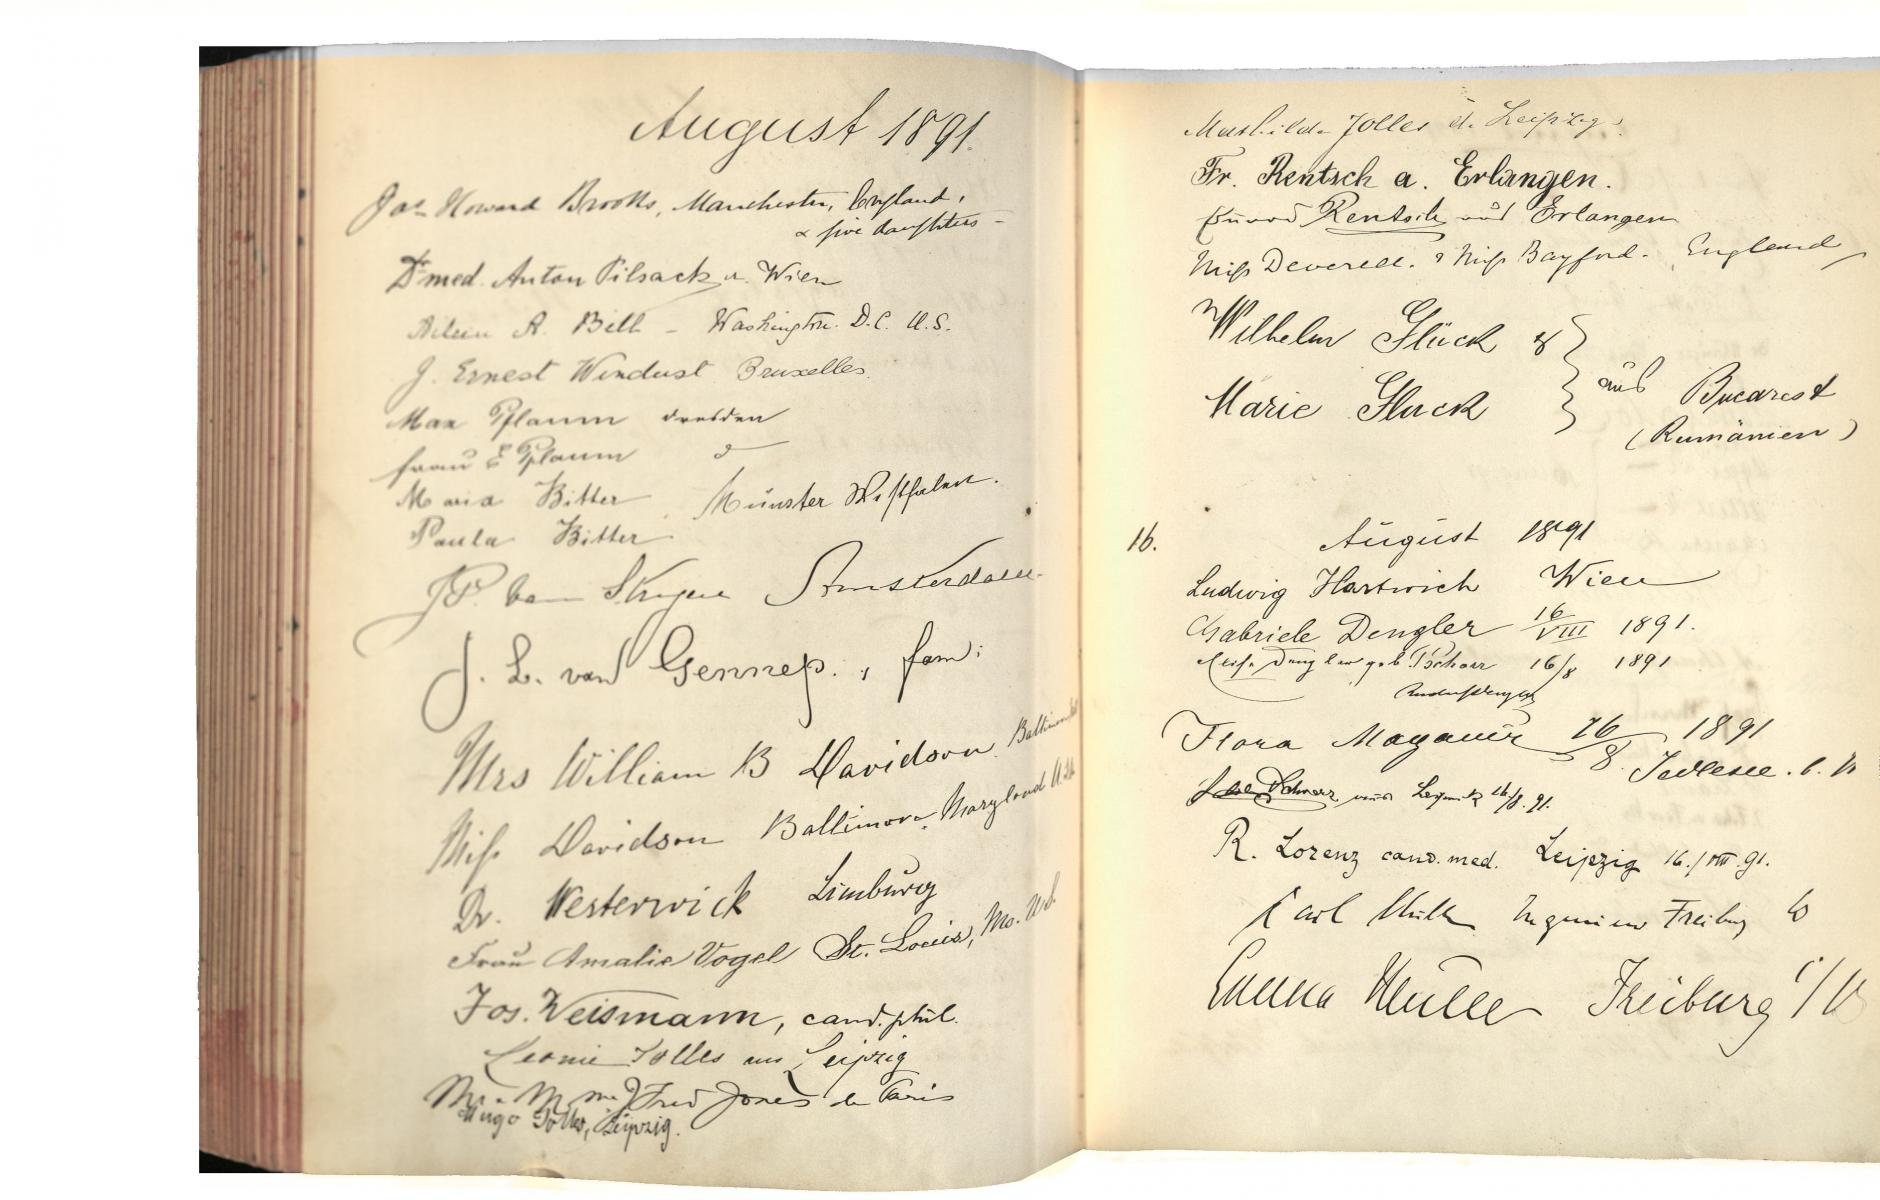 August 1891.
Jas Howard Brooks, Manchester, England,
& five daughters –
Dr med. Anton Pilsack a. Wien
Aileen A. Bell – Washington. D.C. U.S.
J. Ernest Windust Bruxelles.
Max Pflaum Dresden
Frau E Pflaum
Maria Bitter Münster Westfalen.
Paula Bitter
J.P. van Amsterdam
J. L. van Gennep. , fam:
Mrs William B Davidson Baltimore
Miss Davidson Baltimore, Maryland U.S.
Dr. Westerwick Limburg
Frau Amalie Vogel St. Louis, Mo. U.S.
Jos. Weismann, cand. phil.
Leonie Jolles aus Leipzig
Mr & Mme Fred Jones de Paris
Hugo Jolles, Leipzig.
Mathilde Jolles Leipzig.
Fr. Rentsch a. Erlangen.
Rentsch aus Erlangen
Miss Deverell. & Miss Bayford. England
Wilhelm Glück &
Marie Gluck } aus Bucarest
(Rumänien)
16. August 1891
Ludwig Hartwich Wien
Gabriele Dengler 16/VIII 1891.
Dengler geb. 16/8 1891
Flora 16/8 1891
Jedlesee. b. W
aus 16/8. 91.
R. Lorenz cand. med. Leipzig 16./VIII 91.
Carl Ingenieur Freiburg
Emma Freiburg